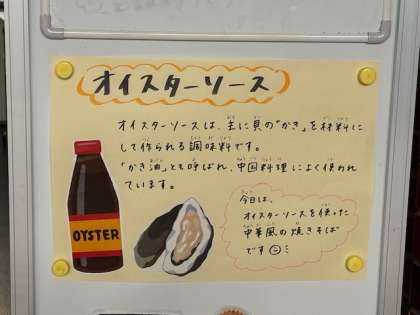 オイスターソース
オイスターソースは、主に貝の"かき"を材料に
して作られる調味料です。
「かき油」とも呼ばれ、中国料理によく使われ
ています。
今日は、
オイスターソースを使った
中華風の焼きそば
です
OYSTER